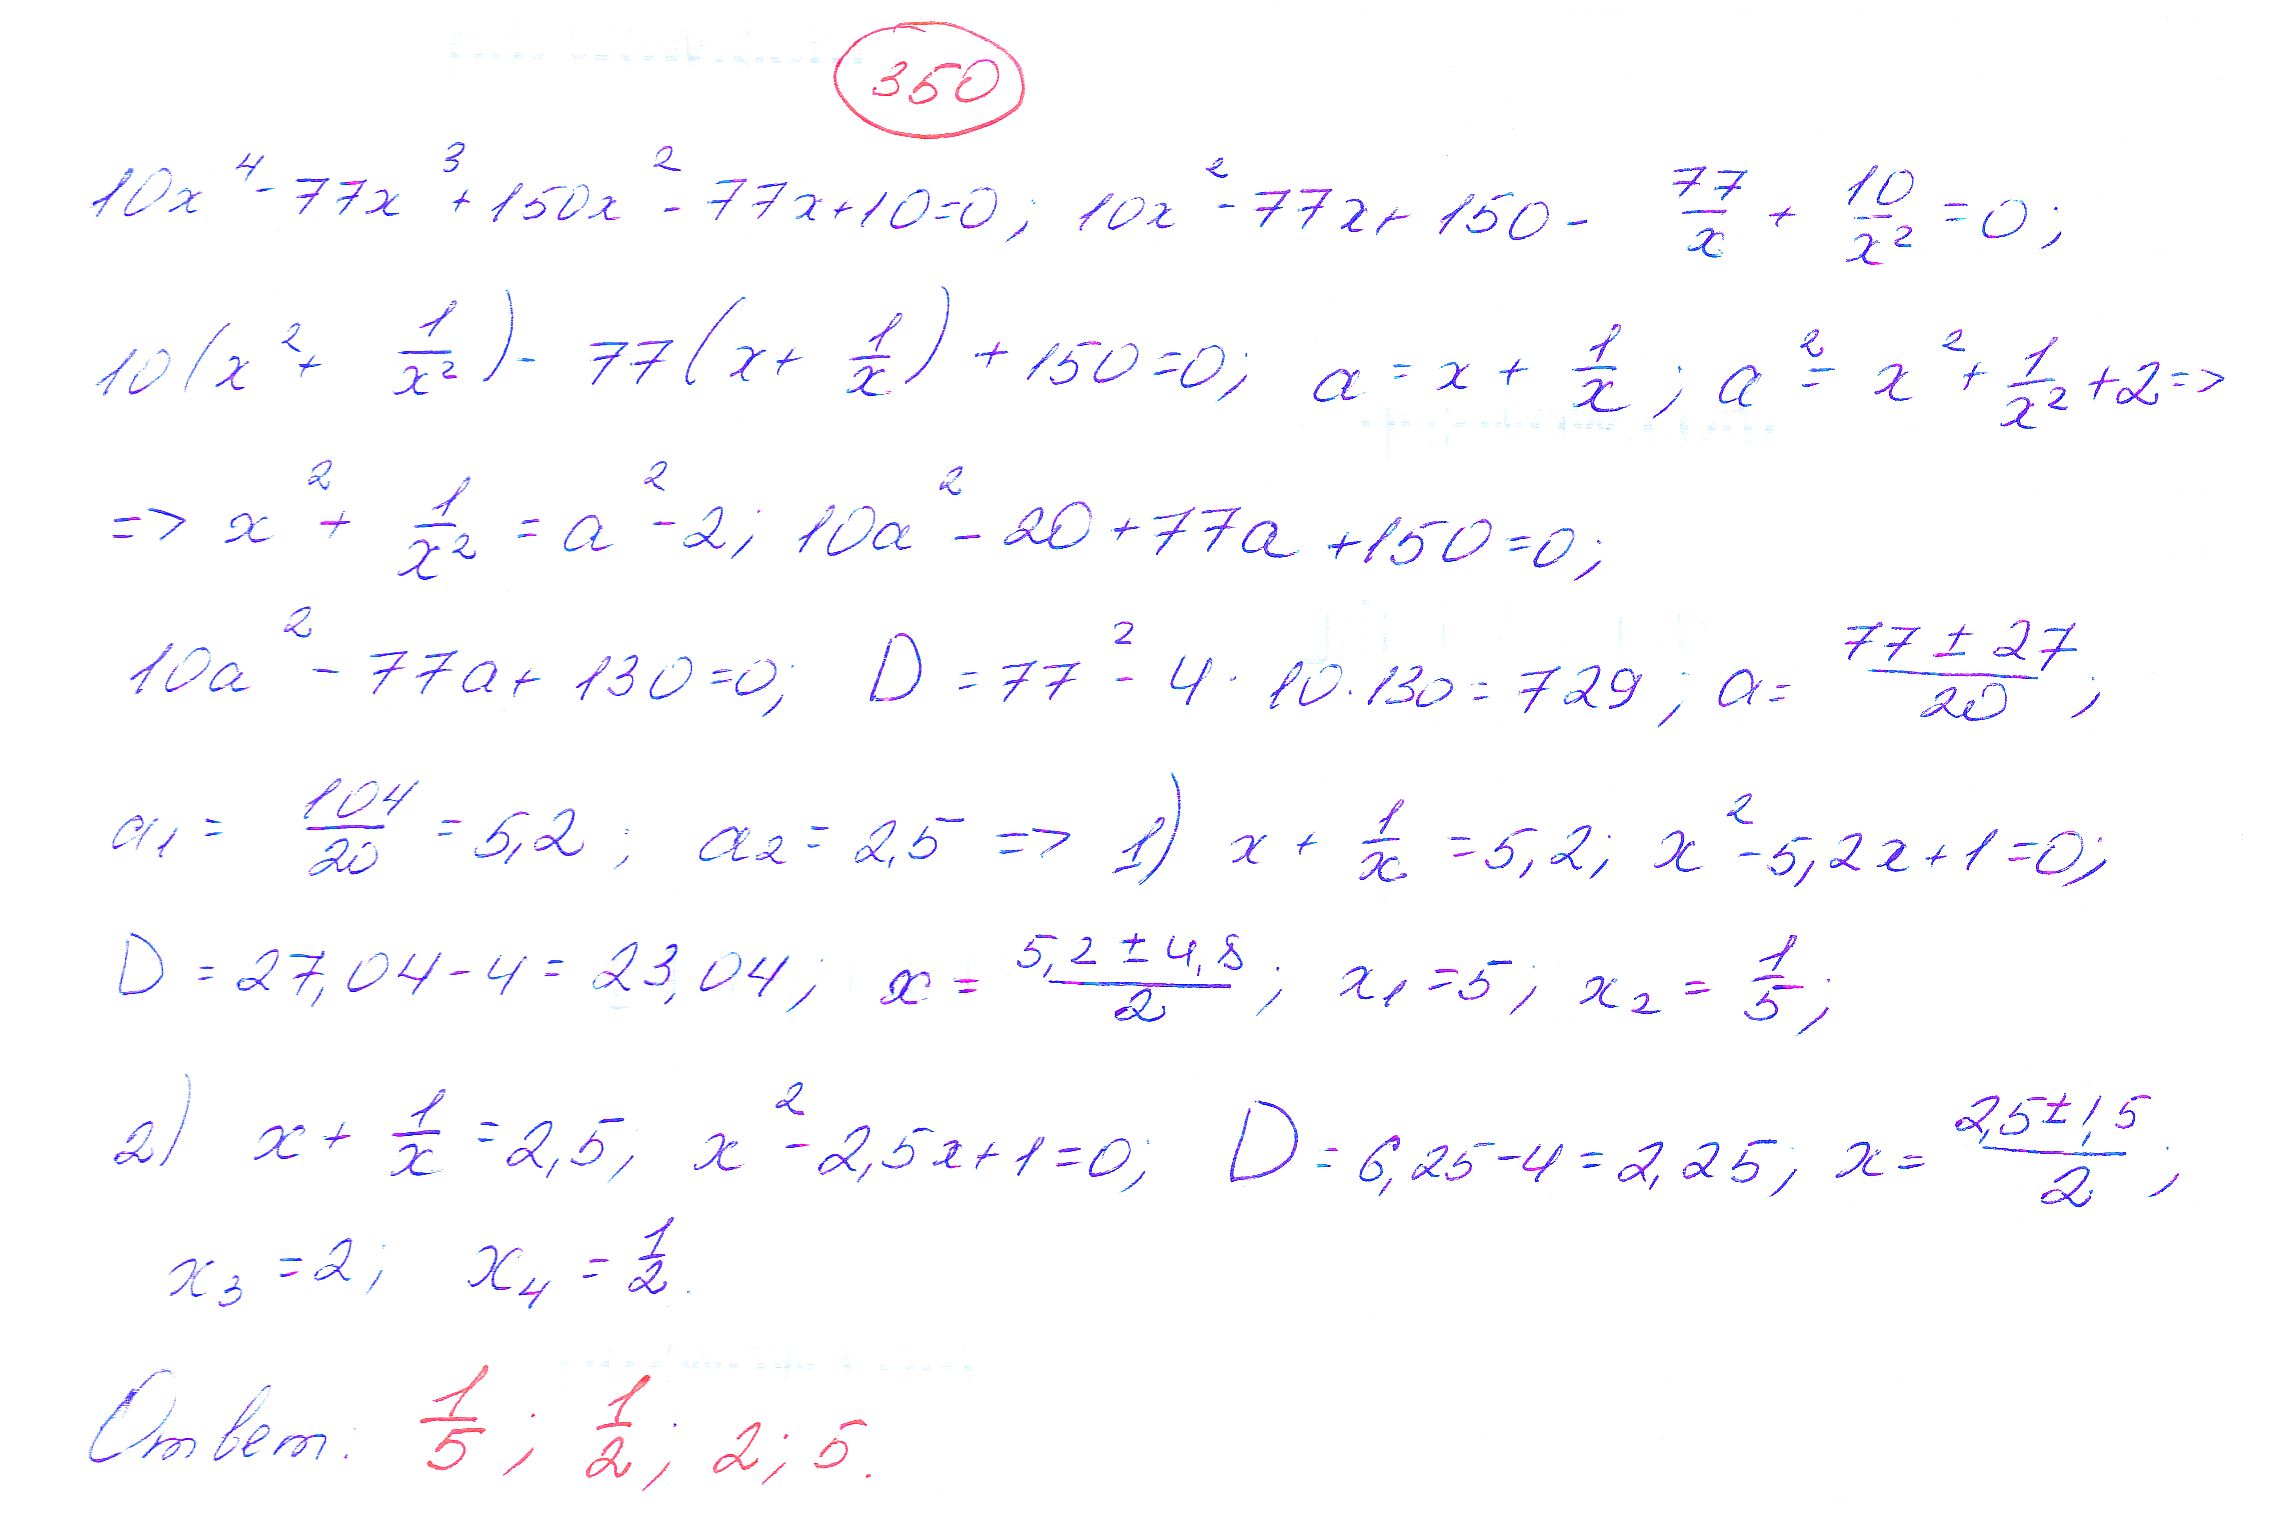 350
10x⁴ - 77x³ + 150x² - 77x + 10 = 0; 10x² - 77x + 150 - 77/x + 10/x² = 0;
10(x² + 1/x²) - 77(x + 1/x) + 150 = 0; a = x + 1/x; a² = x² + 1/x² + 2 =>
=> x² + 1/x² = a² - 2; 10a² - 20 + 77a + 150 = 0;
10a² - 77a + 130 = 0; D = 77² - 4 · 10 · 130 = 729; a = (77 ± 27)/20;
a₁ = 104/20 = 5,2; a₂ = 2,5 => 1) x + 1/x = 5,2; x² - 5,2x + 1 = 0;
D = 27,04 - 4 = 23,04; x = (5,2 ± 4,8)/2; x₁ = 5; x₂ = 1/5;
2) x + 1/x = 2,5; x² - 2,5x + 1 = 0; D = 6,25 - 4 = 2,25; x = (2,5 ± 1,5)/2;
x₃ = 2; x₄ = 1/2.
Ответ: 1/5; 1/2; 2; 5.